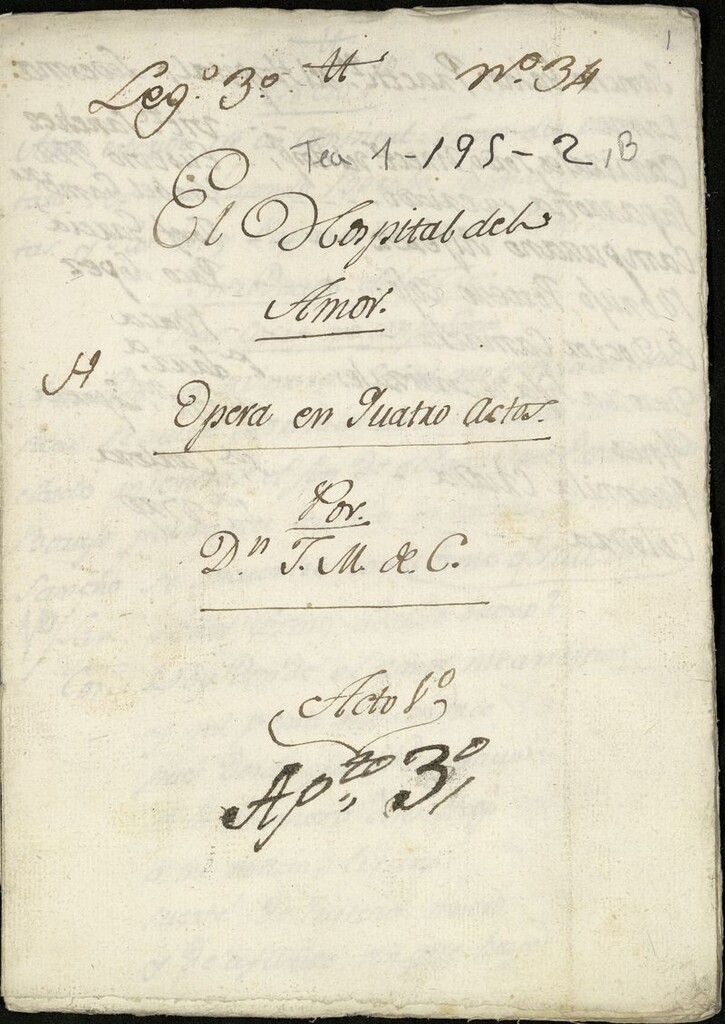 1
Leg.º 3º tt nº 34
Tea 1-195-2, B
El Hospital del
Amor.
Opera en Quatro actos.
Por.
Dn T. M. de C.
Acto 1º
Ap.to 3º